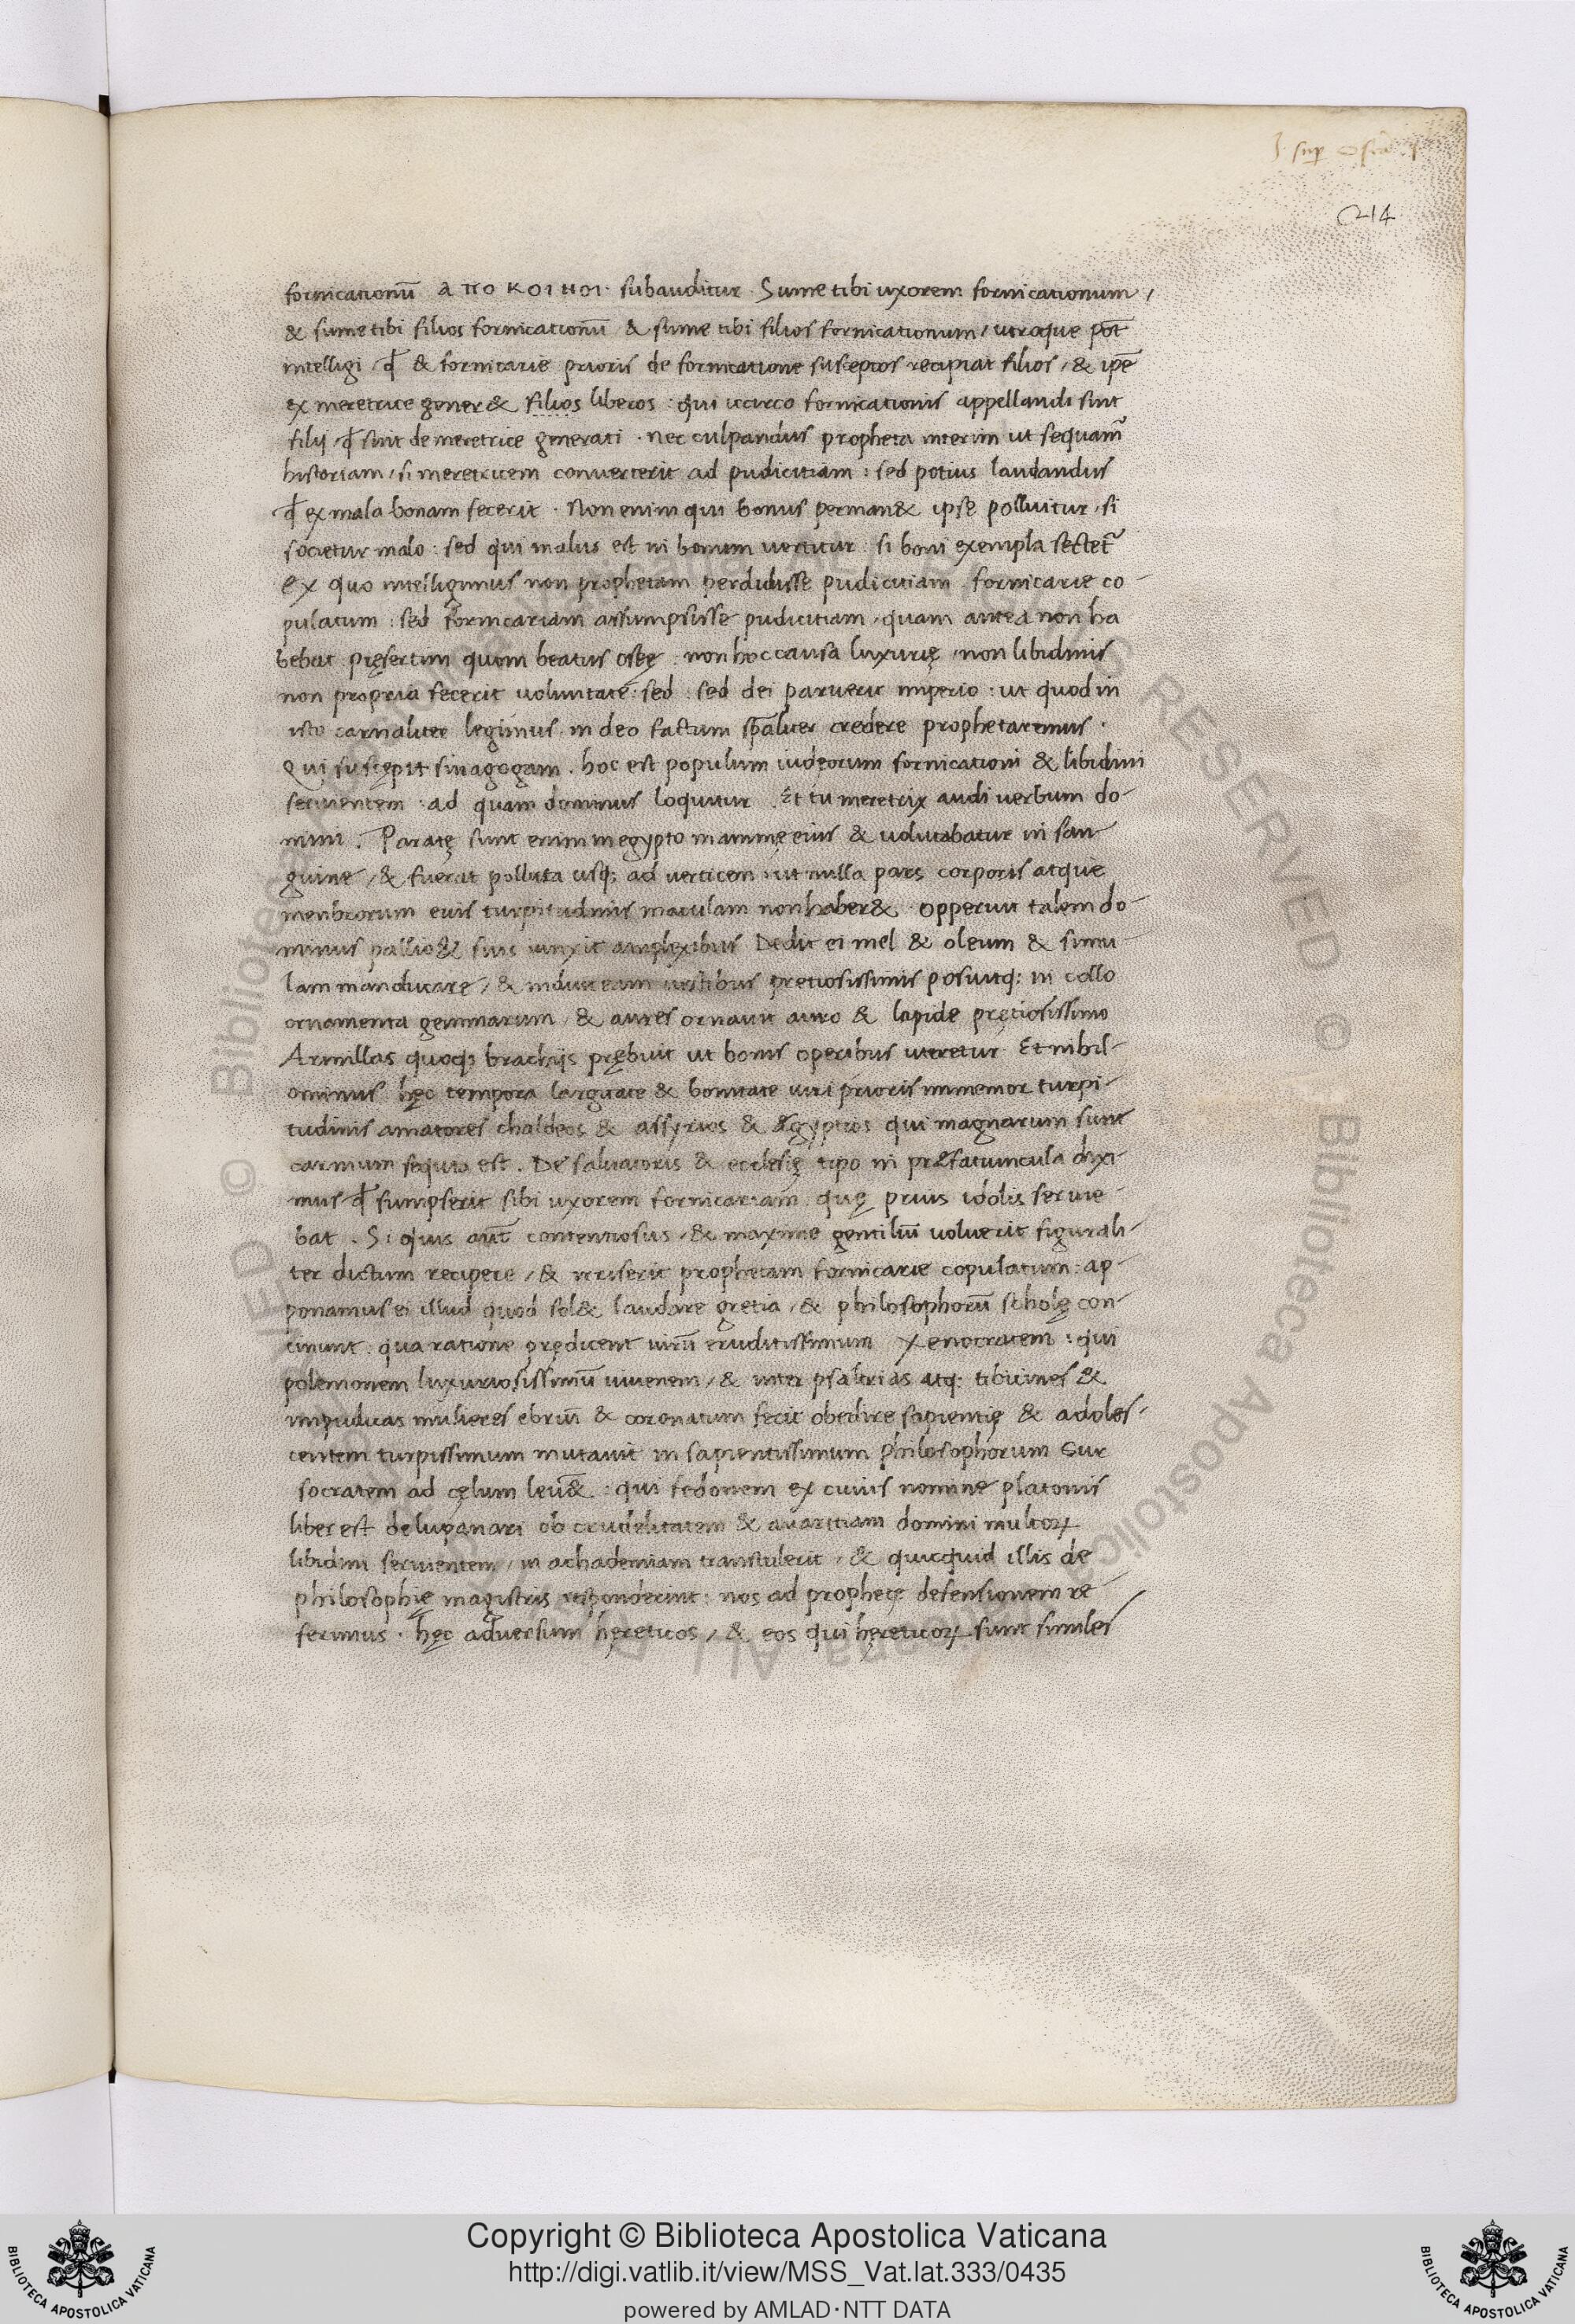 I sup Osea
214
fornicationū απο κοιноι · subauditur · Sume tibi uxorem fornicationum /
& sume tibi filios fornicationū & sume tibi filios fornicationum / utroque pōt
intelligi / ꝙ & fornicarie prioris de fornicatione susceptos recipiat filios / & ip̄e
ex meretrice gener& filios liberos : qui iccirco fornicationis appellandi sint
filij / ꝙ sint de meretrice generati · nec culpandus propheta interim ut sequam̃
historiam / si meretricem converterit ad pudicitiam : sed potius laudandus
ꝙ ex mala bonam fecerit · Non enim qui bonus perman& ipse polluitur / si
societur malo : sed qui malus est in bonum vertitur : si boni exempla sectet̃
Ex quo intelligimus non prophetam perdidisse pudicitiam fornicarie co-
pulatum : sed fornicariam assumpsisse pudicitiam / quam antea non ha
bebat pręsertim quom beatus oseę non hoc causa luxurię / non libidinis
non propria fecerit voluntate : sed : sed dei paruerit imperio : ut quod in
isto carnaliter legimus in deo factum sp̄aliter credere prophetaremus ·
Qui suscępit sinagogam . hoc est populum iudęorum fornicationi & libidini
servientem : ad quam dominus loquitur . Et tu meretrix audi verbum do-
mini . Paratę sunt enim in egypto mammę eius & volutabatur in san
guine / & fuerat polluta usq; ad verticem : ut nulla pars corporis atque
menbrorum euis turpitudinis maculam non haber& · opperuit talem do-
minus pallio & suis iunxit amplexibus Dedit ei mel & oleum & simi-
lam manducare / & induit eam vestibus pretiosissimis posuitq; in collo
ornamenta gemmarum / & aures ornavit auro & lapide pręciosissimo
Armillas quoq; brachijs prębuit ut bonis operibus uteretur Et nihil-
ominus hęc tempora largitate & bonitate viri prioris immemor turpi-
tudinis amatores chaldeos & assyrios & ægyptios qui magnarum sunt
carnium sequta est . De salvatoris & ecclesię tipo in præfatiuncula dixi-
mus ꝙ sumpserit sibi uxorem fornicariam quę prius idolis servie-
bat . Si quis aūt contentiosus / & maxime gentiliū voluerit figurali-
ter dictum recipere / & irriserit prophetam fornicarie copulatum : ap-
ponamus ei illud quod sol& laudare gretia / & philosophorū scholę con-
cinunt : qua ratione prędicent virū eruditissimum Xenocratem : qui
polemonem luxuriosissimū iuvenem / & inter psaltrias atq; tibicines &
impudicas mulieres ebriū & coronatum fecit obedire sapientię & adoles-
centem turpissimum mutavit in sapientissimum philosophorum Cur
socratem ad cęlum leu& : qui fedonem ex cuius nomine platonis
liber est de lupanari ob crudelitatem & avaritiam domini multoꝝ
libidini servientem / in achademiam transtulerit / & quicquid illis de
philosophię magistris responderint : nos ad prophetę defensionem re
ferimus · hęc adversum hęreticos / & eos qui hęreticoꝝ sunt similes
Copyright © Biblioteca Apostolica Vaticana
http://digi.vatlib.it/view/MSS_Vat.lat.333/0435
powered by AMLAD·NTT DATA